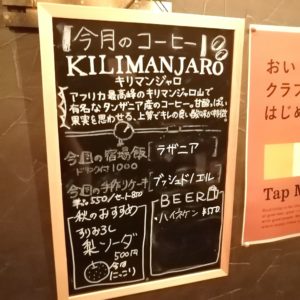 今月のコーヒー
KILIMANJARO
キリマンジャロ
アフリカ最高峰のキリマンジャロ山で
有名なタンザニア産のコーヒー。甘酸っぱい
果実を思わせる、上質でキレの良い酸味が特徴
今月の宿場飯
ドリンク付 1000
ラザニア
今月の手作りケーキ
単品550/セット850
ブッシュドノエル
秋のおすすめ
すりおろし
梨ソーダ
500円
今月
にっこり
BEER
・ハイネケン ¥550
おい
クラフ
はじめ
Tap M